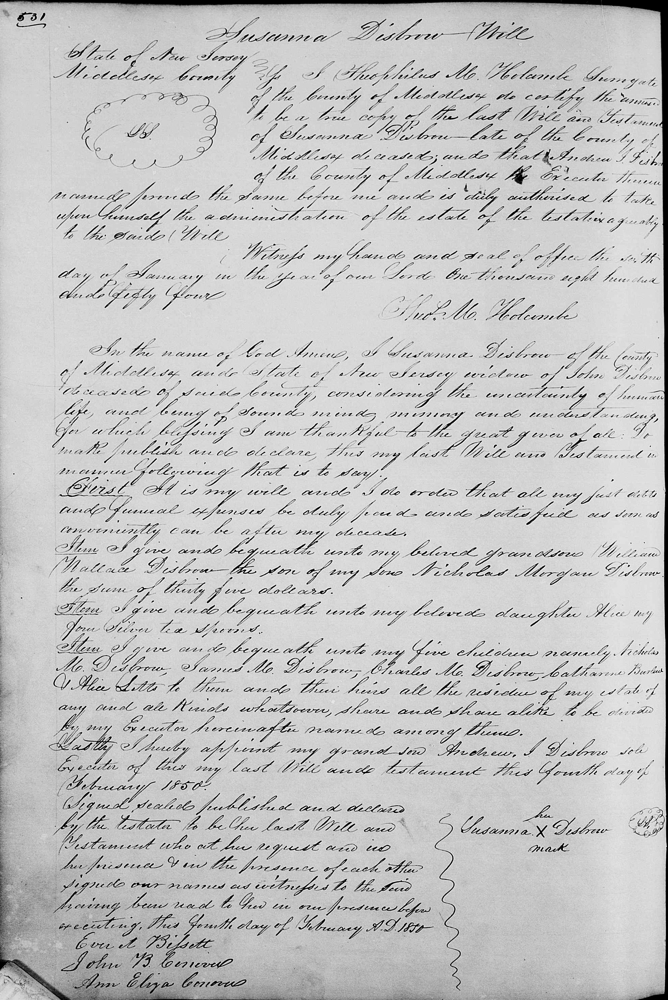 501
Susanna Disbrow Will
State of New Jersey
Middlesex County
SS I Theophilus M. Holcombe Surrogate
of the County of Middlesex do certify the annexed
to be a true copy of the last Will and Testament
of Susanna Disbrow late of the County of
Middlesex deceased, and that Andrew I Disbrow
of the County of Middlesex the Executor therein
named proved the same before me and is duly authorised to take
upon himself the administration of the estate of the testatrix agreeably
to the said Will
Witness my hand and seal of office the sixth
day of January in the year of our Lord One thousand eight hundred
and fifty four
Theo. M. Holcombe
In the name of God Amen, I Susanna Disbrow of the County
of Middlesex and State of New Jersey widow of John Disbrow
deceased of said County, considering the uncertainty of human
life, and being of sound mind, memory and understanding,
for which blessing I am thankful to the great giver of all: Do
make publish and declare, this my last Will and Testament in
manner following that is to say,
First It is my will and I do order that all my just debts
and funeral expenses be duly paid and satisfied as soon as
conveniently can be after my decease.
Item I give and bequeath unto my beloved grandson William
Wallace Disbrow the son of my son Nicholas Morgan Disbrow
the sum of thirty five dollars.
Item I give and bequeath unto my beloved daughter Alice my
four silver tea spoons.
Item I give and bequeath unto my five children namely Nicholas
M. Disbrow, James M. Disbrow, Charles M. Disbrow, Catharine
& Alice Letts to them and their heirs all the residue of my estate of
any and all kinds whatsoever, share and share alike to be divided
by my Executor hereinafter named among them.
Lastly I hereby appoint my grand son Andrew. I Disbrow sole
Executor of this my last Will and testament this fourth day of
February 1850.
Signed sealed published and declared
by the testator to be her last Will and
Testament who at her request and in
her presence & in the presence of each other
signed our names as witnesses to the
having been read to her in our presence before
executing, this fourth day of February A.D. 1850
her
Susanna X Disbrow
mark
Evert Bissett
John B. Conover
Ann Eliza Conover